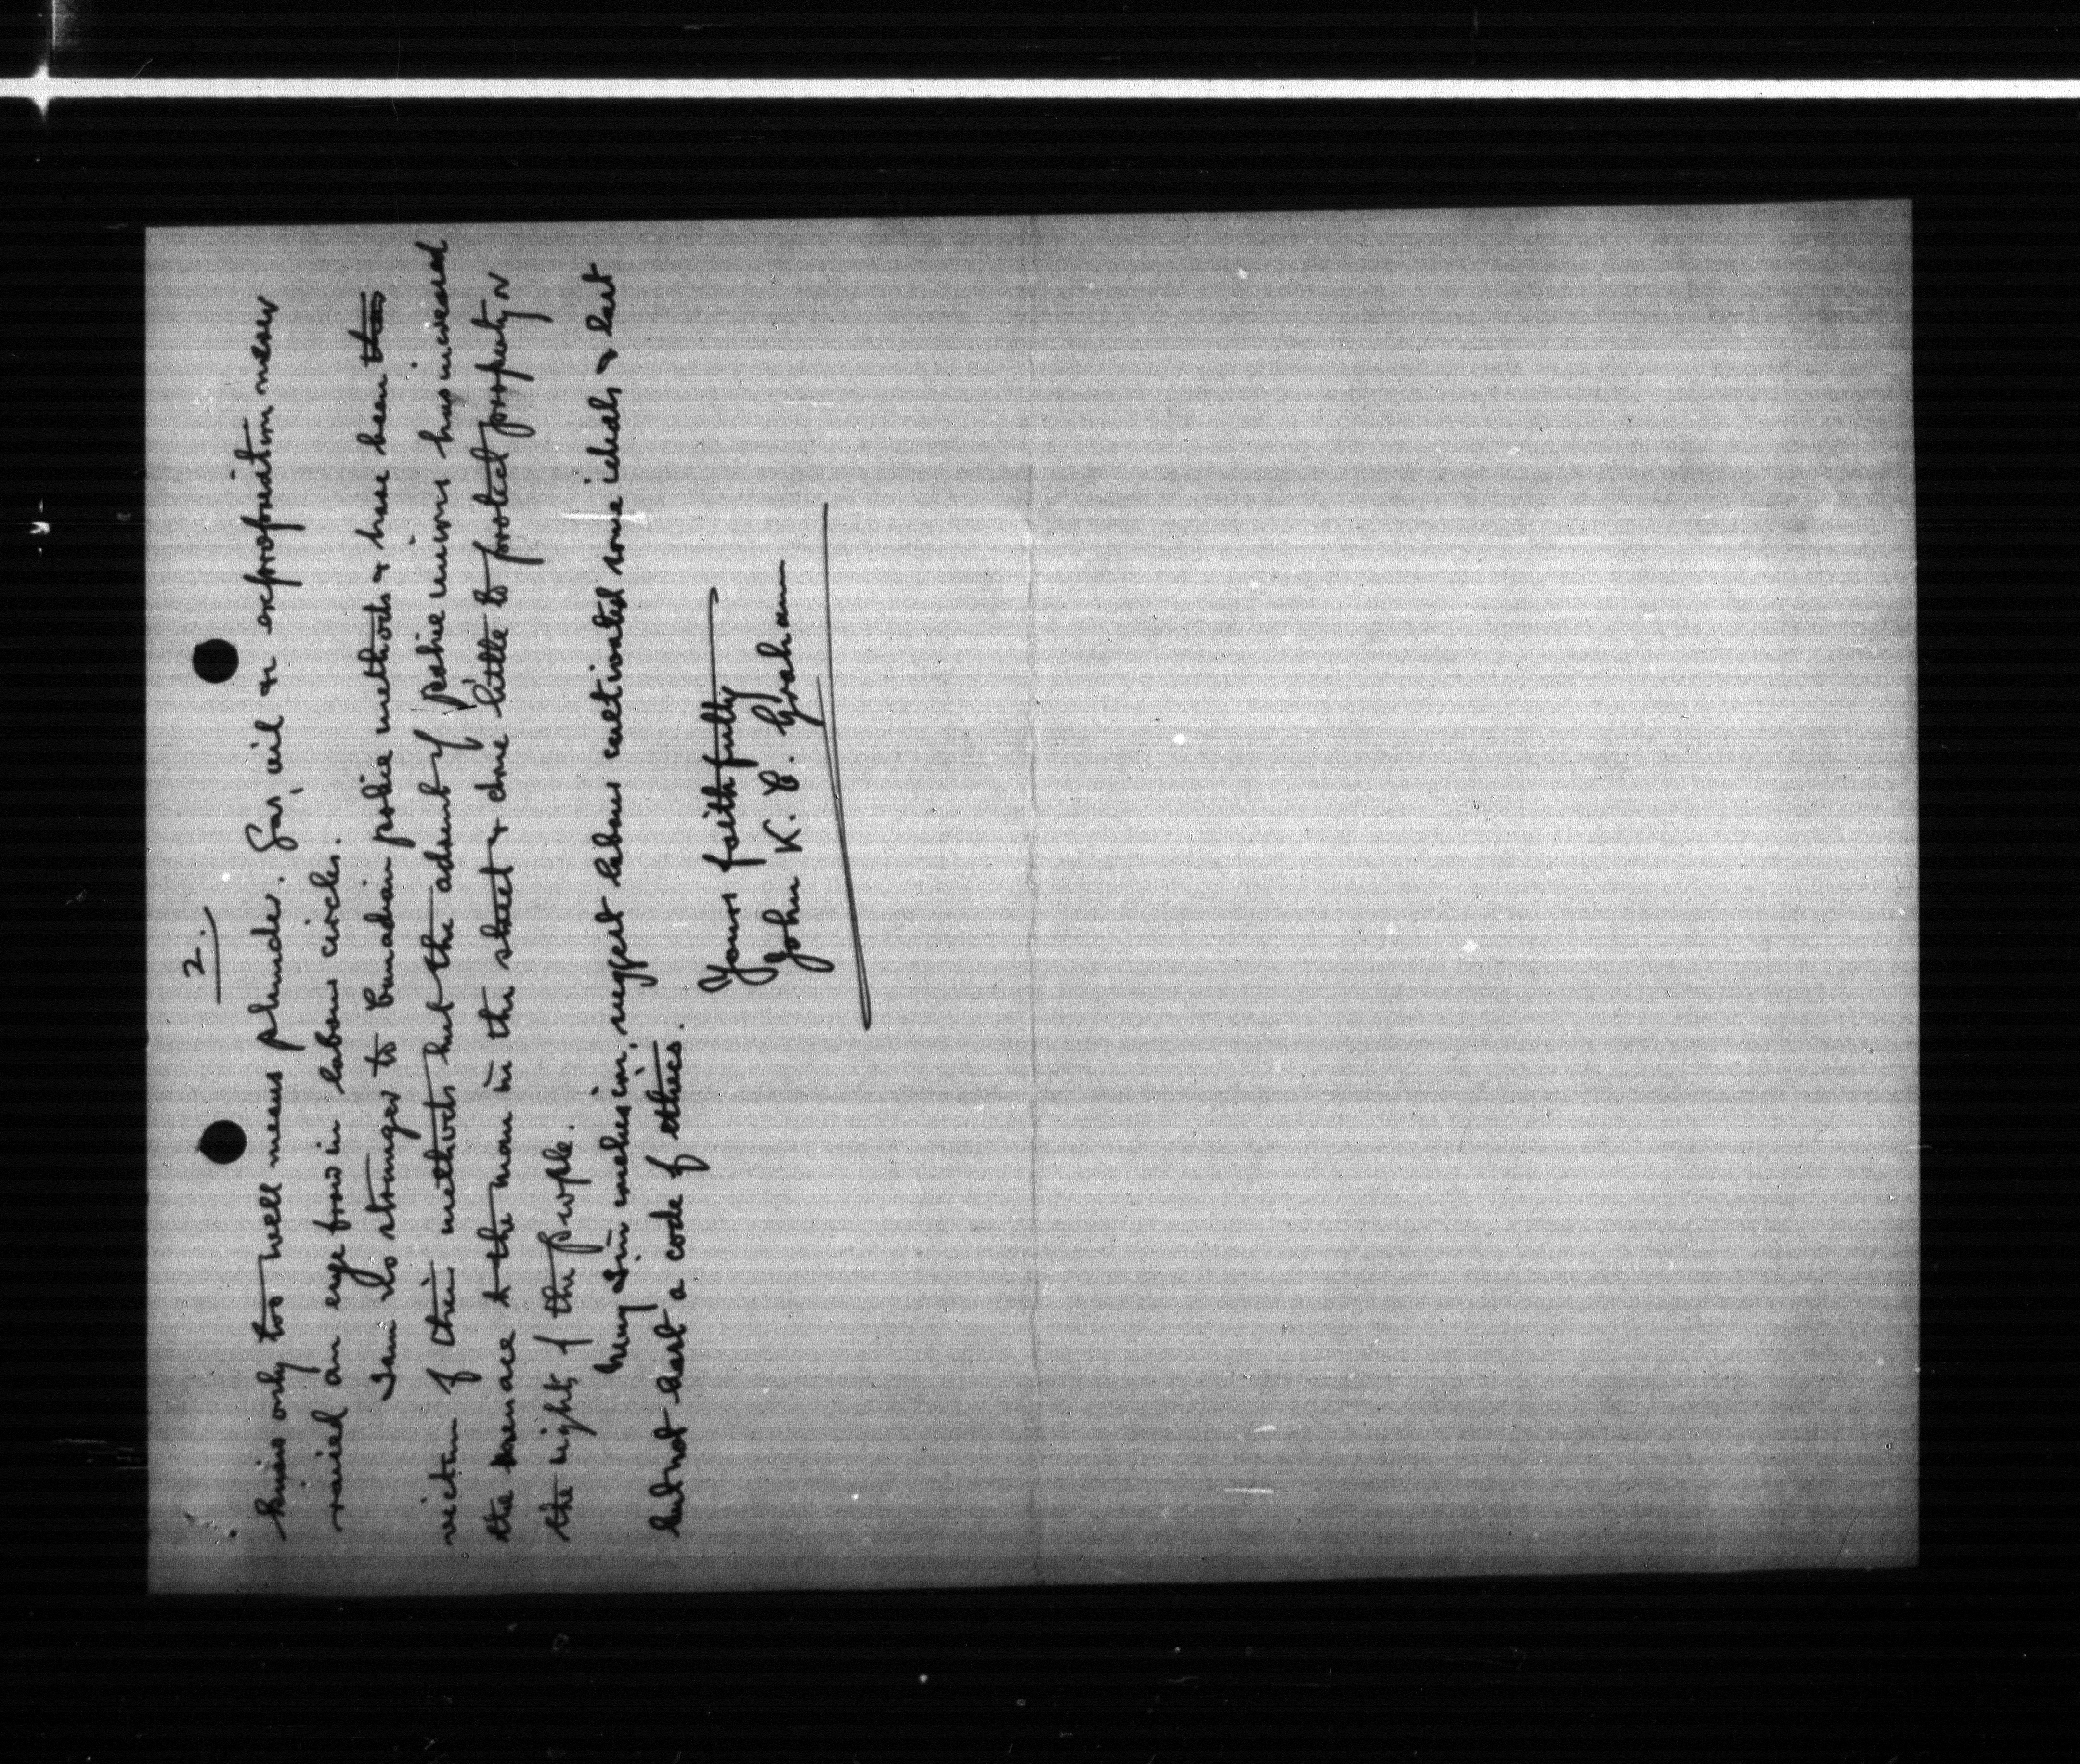 2.
knows only too well means plunder. Gas, oil & expropriation never
raised an eye brow in labour circles.
I am no stranger to Canadian police methods & have been
victim of their methods but the advent of police unions has increased
the menace to the man in the street & done little to protect property or
the rights of the people.
May I in conclusion, suggest labour cultivated some ideals & last
but not least a code of ethics.
Yours faithfully
John K. C. Graham